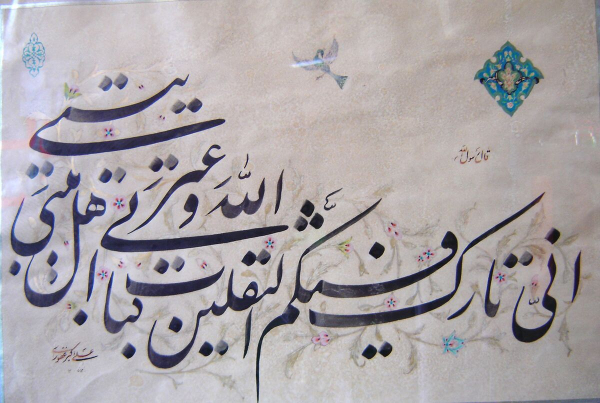 قال رسول الله
انّی تارک فیکم الثقلین کتاب الله و عترتی اهل بیتی